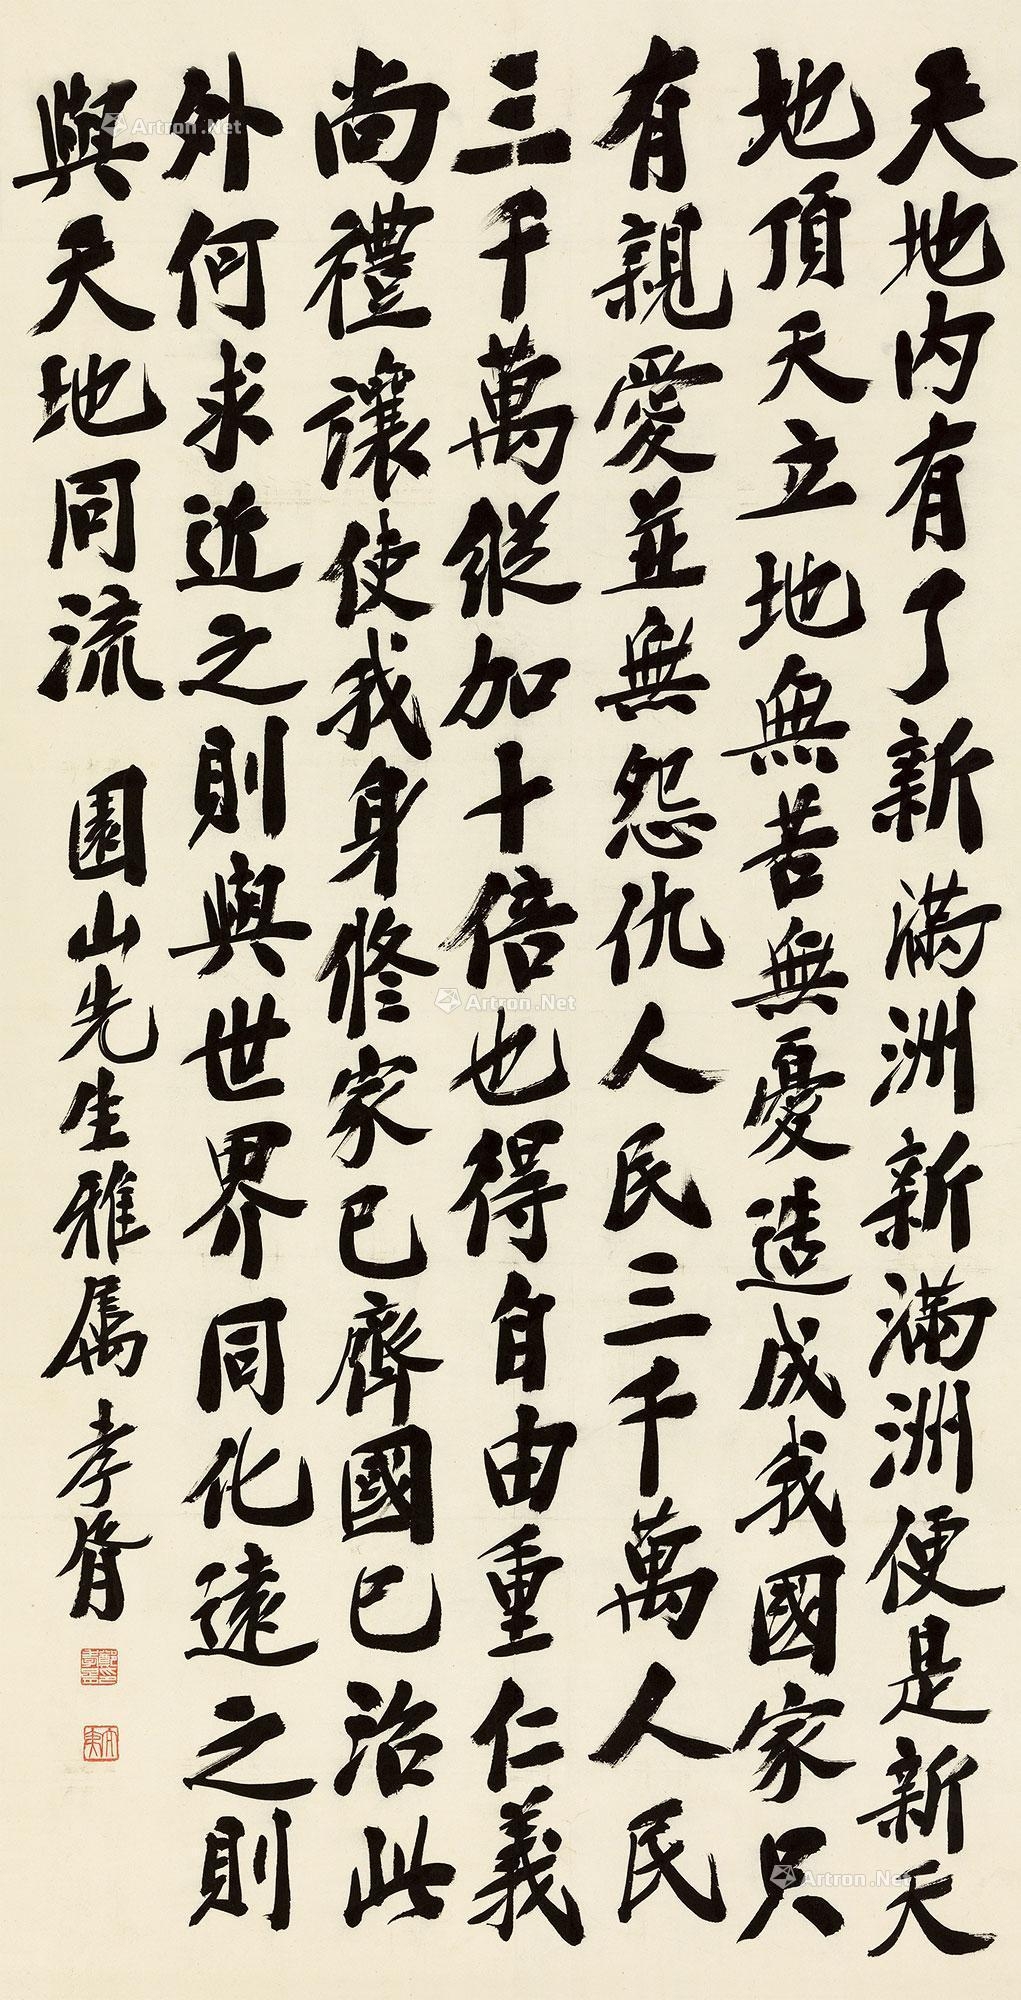 天地內有了新滿洲新滿洲便是新天
地頂天立地無苦無憂造成我國家只
有親愛並無怨仇人民三千萬人民
三千萬縱加十倍也得自由重仁義
尚禮讓使我身修家已齊國已治此
外何求近之則與世界同化遠之則
與天地同流
園山先生雅屬 孝胥
Artron.Net
Artron.Net
Artron.Net